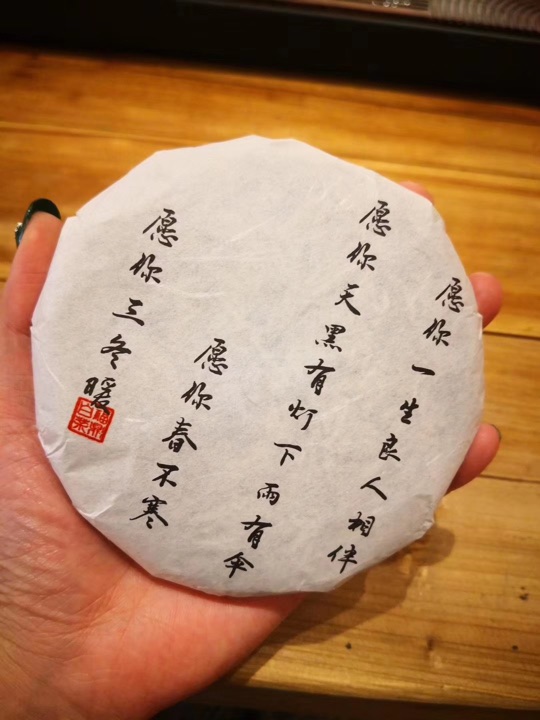 愿你三冬暖
愿你春不寒
愿你天黑有灯下雨有伞
愿你一生良人相伴